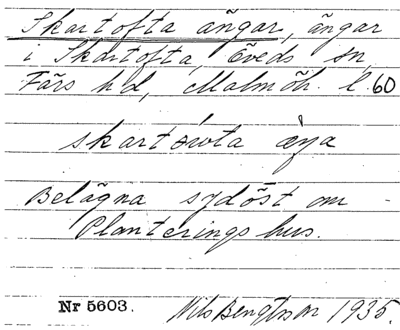 Skartofta ängar, ängar
i Skartofta, Öveds sn,
Färs hd, Malmöh. l. 60
skartówta æ̀ŋa
Belägna sydöst om
Planterings hus.
Nr 5603. Nils Bengtsson 1935.